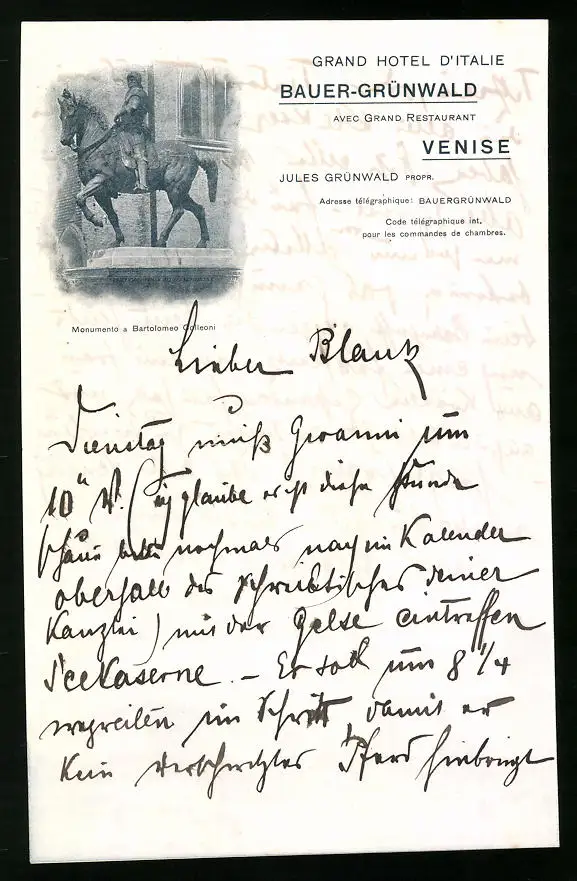 GRAND HOTEL D'ITALIE
BAUER-GRÜNWALD
AVEC GRAND RESTAURANT
VENISE
JULES GRÜNWALD PROPR.
Adresse télégraphique: BAUERGRÜNWALD
Code télégraphique int.
pour les commandes de chambres.
Monumento a Bartolomeo Colleoni
Lieber Blank
Dienstag muß Giovanni um
10 V. (ich glaube es ist diese Stunde
schaue nochmals nach im Kalender
oberhalb des Schreibtisches deiner
Kanzlei) mit der Gelse eintreffen
Kaserne. – Er soll um 8 1/4
wegreiten im Schritt damit er
kein Pferd hinbringt